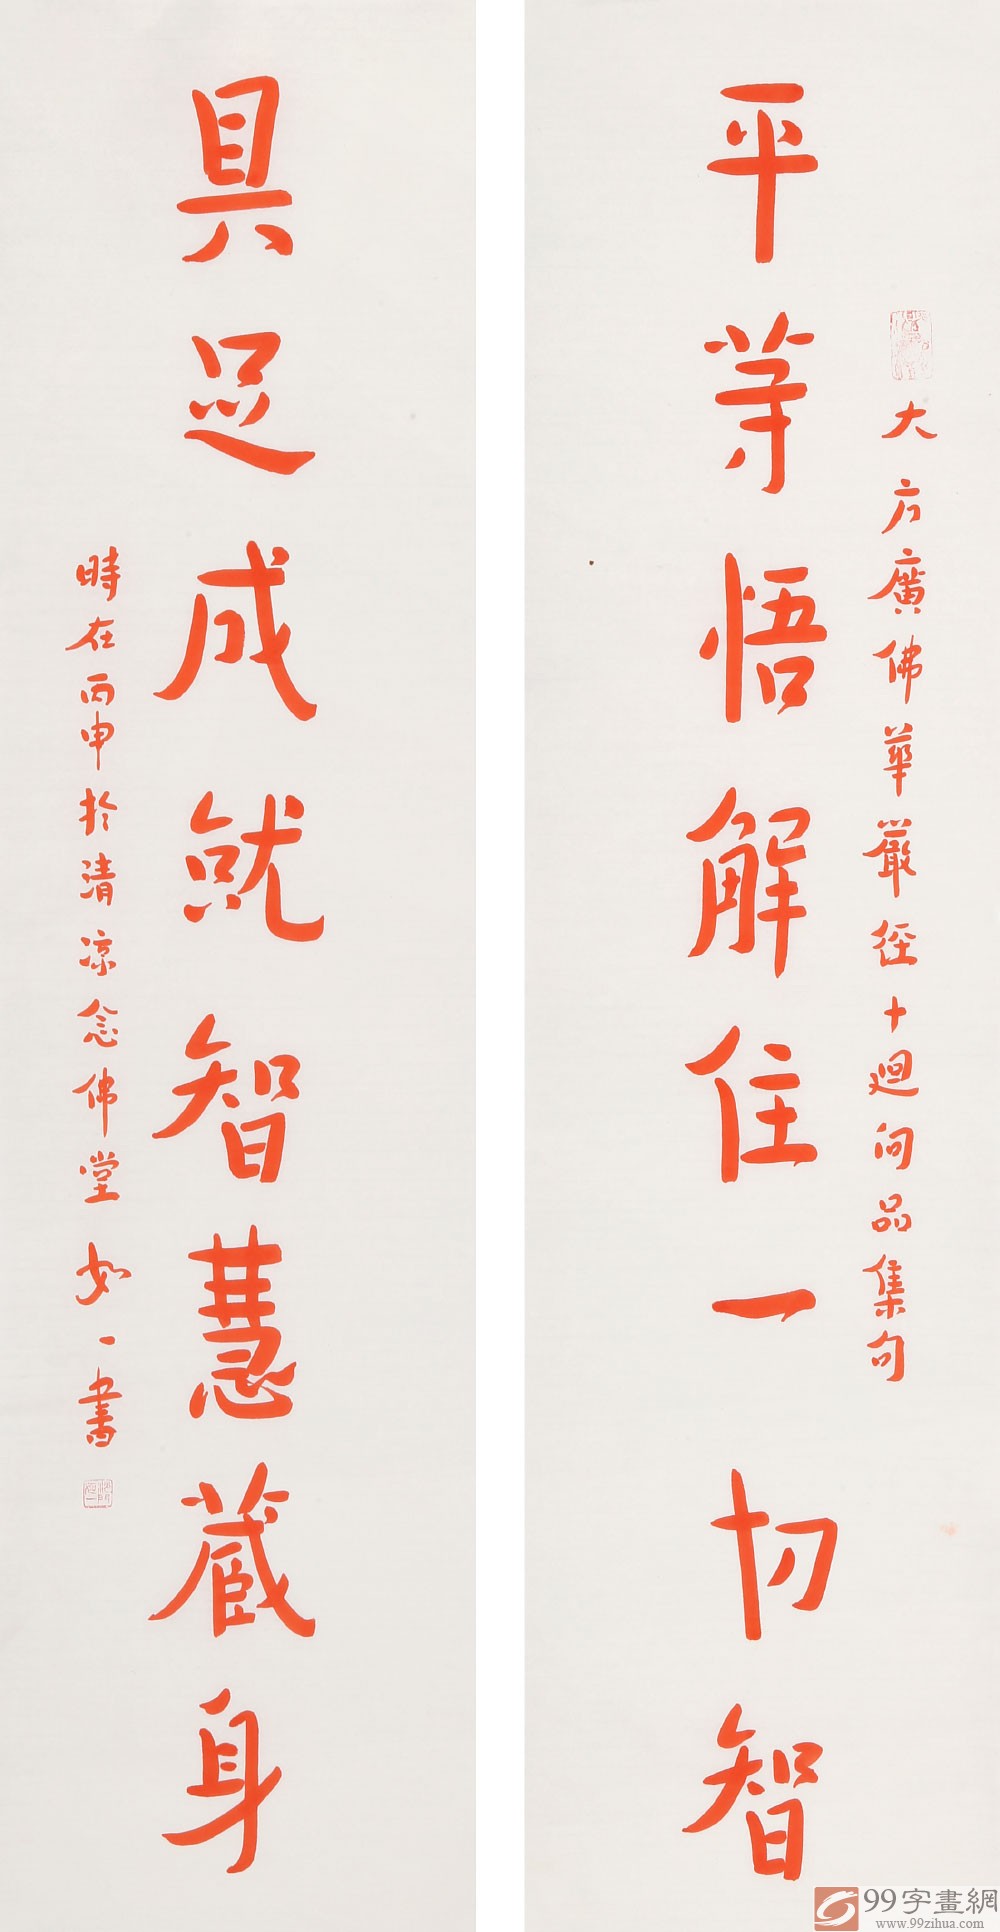 大方廣佛華嚴経十迴向品集句
平等悟解住一切智
具足成就智慧蔵身
時在丙申於清凉念佛堂如一書
99字畫網
www.99zihua.com